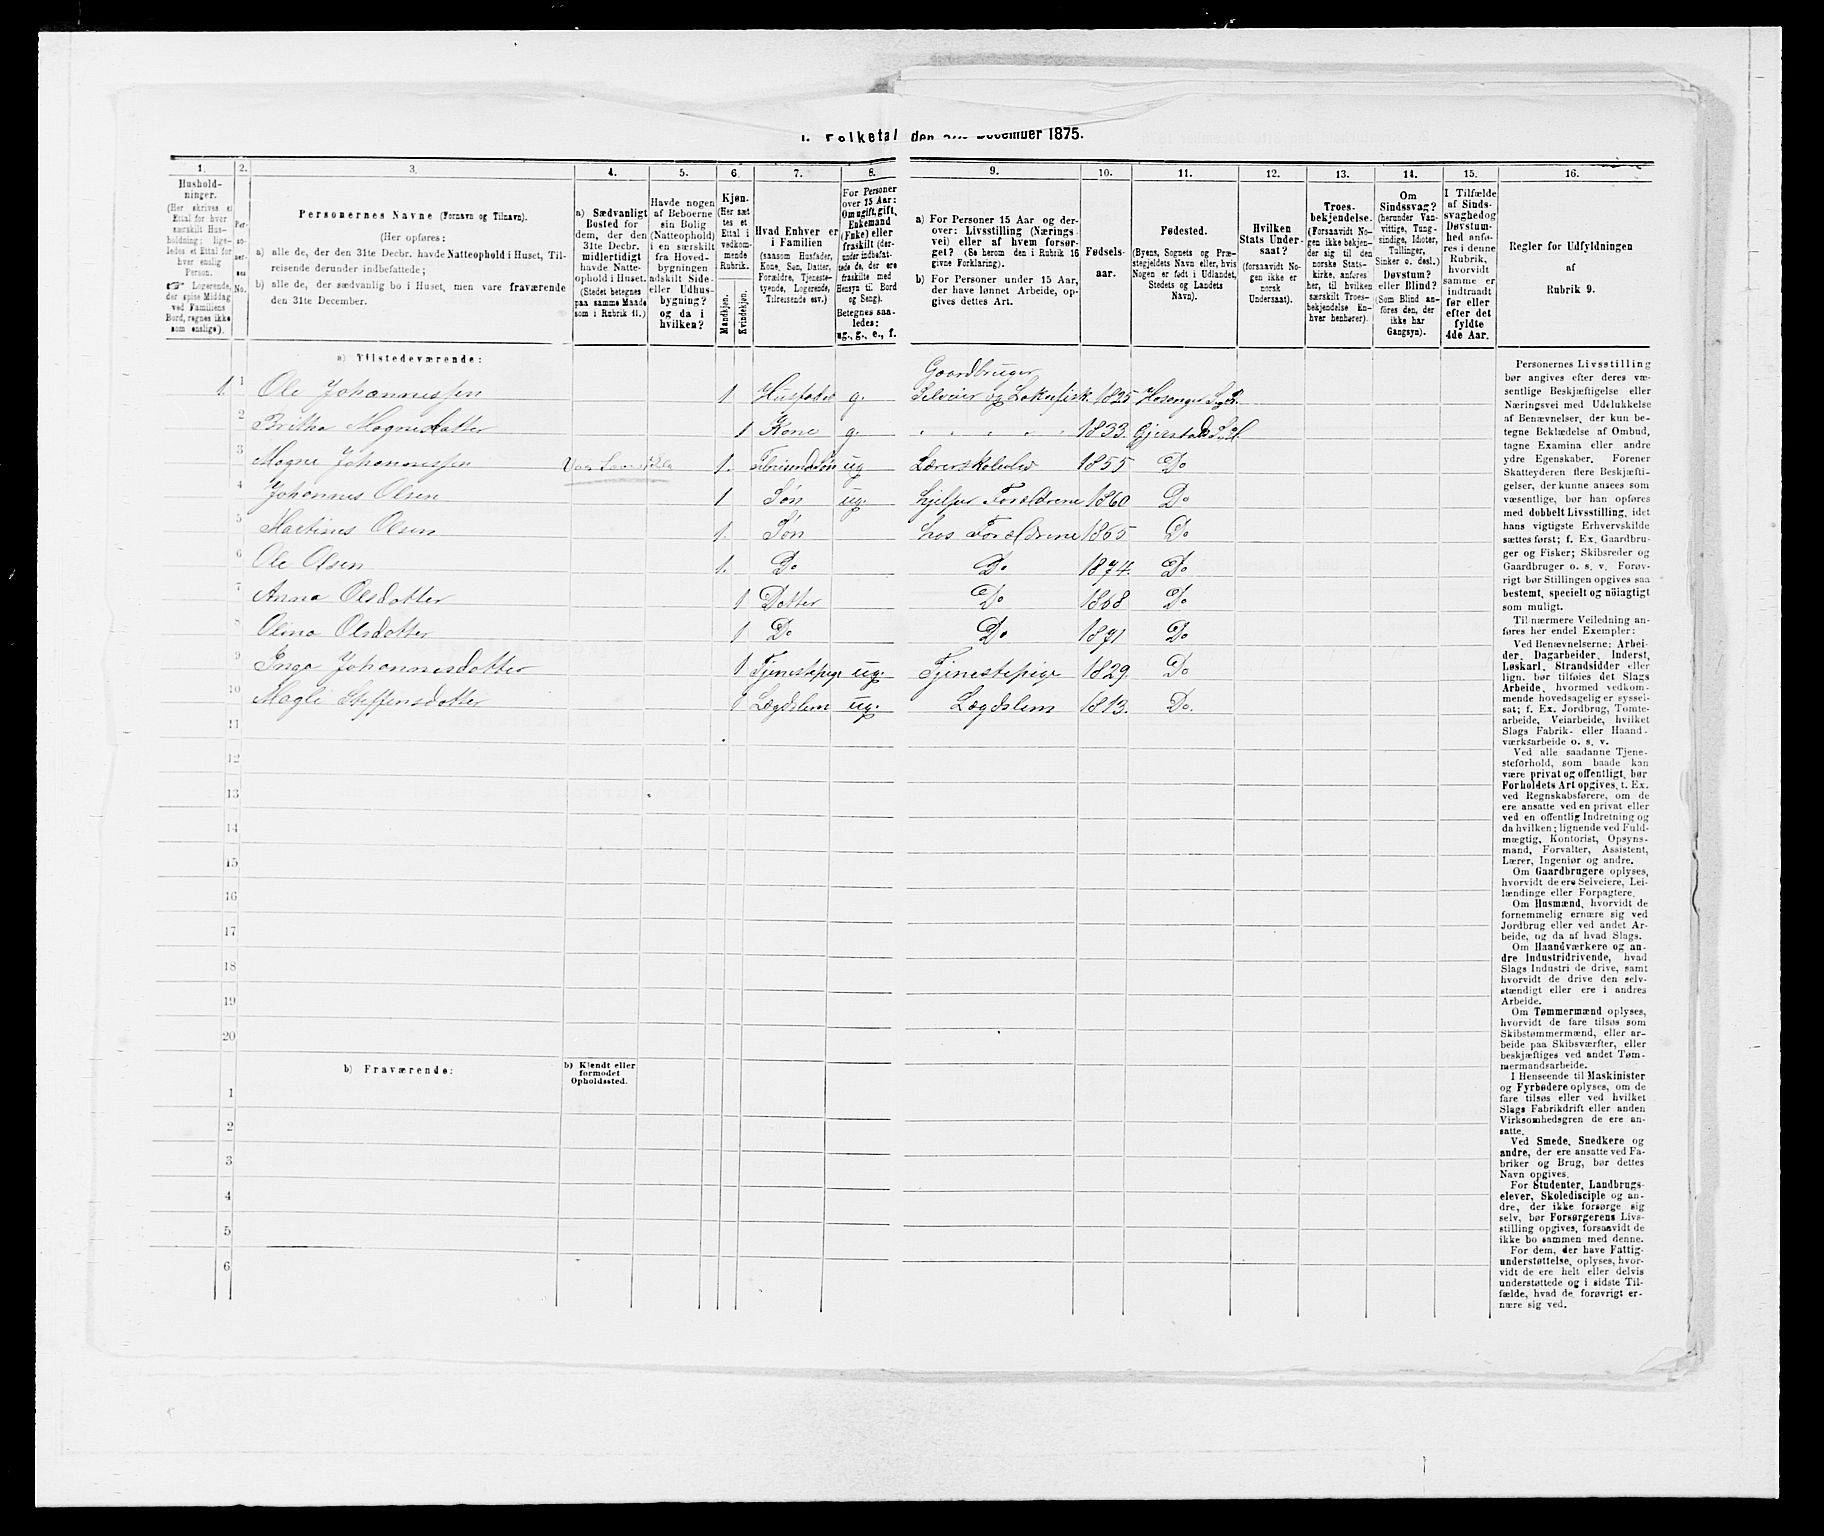 I. Folketal den December 1875.
1. 2. 3. 4. 5. 6. 7. 8. 9. 10. 11. 12. 13. 14. 15. 16.
Husholdninger. (Her skrives et Ettal for hver særskilt Husholdning; ligeledes et Ettal for hver enslig Person. ☞ Logerende, der spise Middag ved Familiens Bord, regnes ikke som enslige).
Personernes No.
Personernes Navne (Fornavn og Tilnavn).
(Her opføres:
a) alle de, der den 31te Decbr. havde Natteophold i Huset, Tilreisende derunder indbefattede;
b) alle de, der sædvanlig bo i Huset, men vare fraværende den 31te December.
a) Sædvanligt Bosted for dem, der den 31te Decbr. midlertidigt havde Natteophold i Huset. (Stedet betegnes paa samme Maade som i Rubrik 11.)
Havde nogen af Beboerne sin Bolig (Natteophold) i en særskilt fra Hovedbygningen adskilt Side- eller Udhusbygning? og da i hvilken?
Kjøn. (Her sættes et Ettal i vedkommende Rubrik.
Mandkjøn. Kvindekjøn.
Hvad Enhver er i Familien (saasom Husfader, Kone, Søn, Datter, Forældre, Tjenestetyende, Logerende, Tilreisende osv.)
For Personer over 15 Aar: Om ugift, gift, Enkemand (Enke) eller fraskilt (derunder indbefattede de, der ere fraskilte med Hensyn til Bord og Seng). Betegnes saaledes: ug., g., e., f.
a) For Personer 15 Aar og derover: Livsstilling (Næringsvei) eller af hvem forsørget? (Se herom den i Rubrik 16 givne Forklaring).
b) For Personer under 15 Aar, der have lønnet Arbeide, opgives dettes Art.
Fødselsaar.
Fødested. (Byens, Sognets og Præstegjeldets Navn eller, hvis Nogen er født i Udlandet, Stedets og Landets Navn).
Hvilken Stats Undersaat? (forsaavidt Nogen ikke er norsk Undersaat).
Troesbekjendelse. (Forsaavidt Nogen ikke bekjender sig til den norske Statskirke, anføres her, til hvilken særskilt Troesbekjendelse Enhver henhører).
Om Sindssvag? (herunder Vanvittige, Tungsindige, Idioter, Tullinger, Sinker o. desl.) Døvstum? eller Blind? (Som Blind anføres den, der ikke har Gangsyn).
I Tilfælde af Sindssvaghed og Døvstumhed anføres i denne Rubrik, hvorvidt samme er indtraadt før eller efter det fyldte 4de Aar.
Regler for Udfyldningen af Rubrik 9.
a) Tilstedeværende:
Gaardbruger
1. 1 Ole Johannessen 1. Husfader g. Selveier og 1825 Hosanger
2 Britha Magnesdatter 1 Kone g. 1833.
3 Magne Johannessen 1. ug 1855 Do
4 Johannes Olsen 1 Søn ug. hjelper Forældrene 1860 Do
5 Martines Olsen 1. Søn hos Forældrene 1865 Do
6 Ole Olsen 1. Do Do 1874. Do
7 Anna Olsdatter 1 Datter Do 1868 Do
8 Olina Olsdatter 1 Do Do 1871 Do
9 Inga Johannesdatter 1 Tjenestepige ug. Tjenestepige 1829. Do
10 Magli Steffensdatter 1 Lægdslem ug. Lægdslem 1813. Do.
11
12
13
14
15
16
17
18
19
20
b) Fraværende: b) Kjendt eller formodet Opholdssted.
1
2
3
4
5
6
Personernes Livsstilling
bør angives efter deres væ-
sentlige Beskjæftigelse eller
Næringsvei med Udelukkelse
af Benævnelser, der kun be-
tegne Beklædelse af Ombud,
tagne Examina eller andre
ydre Egenskaber. Forener
Skatteyderen flere Beskjæfti-
gelser, der kunne ansees som
væsentlige, bør han opføres
med dobbelt Livsstilling, idet
hans vigtigste Erhvervskilde
sættes først; f. Ex. Gaardbru-
ger og Fisker; Skibsreder og
Gaardbruger o. s. v. Forøv-
rigt bør Stillingen opgives saa
bestemt, specielt og nöiagtigt
som muligt.
Til nærmere Veiledning an-
føres her endel Exempler:
Ved Benævnelserne: Arbei-
der, Dagarbeider, Inderst,
Løskarl, Strandsidder eller
lign. bør tilføies det Slags
Arbeide, hvormed vedkom-
mende hovedsagelig er syssel-
sat; f. Ex. Jordbrug, Tomte-
arbeide, Veiarbeide, hvilket
Slags Fabrik- eller Haand-
værksarbeide o. s. v.
Ved alle saadanne Tjene-
steforhold, som baade kan
være privat og offentligt, bør
Forholdets Art opgives, t. Ex.
ved Regnskabsførere, om de
ere ansatte ved en privat eller
ved en offentlig Indretning og
da hvilken; lignende ved Fuld-
mægtig, Kontorist, Opsyns-
mand, Forvalter, Assistent,
Lærer, Ingeniør og andre.
Om Gaardbrugere oplyses,
hvorvidt de ere Selveiere, Lei-
lændinge eller Forpagtere.
Om Husmænd, hvorvidt de
fornemmelig ernære sig ved
Jordbrug eller ved andet Ar-
beide, og da af hvad Slags.
Om Haandværkere og an-
dre Industridrivende, hvad
Slags Industri de drive, samt
hvorvidt de drive den selv-
stændigt eller ere i andres
Arbeide.
Om Tømmermænd oplyses,
hvorvidt de fare tilsøs som
Skibstømmermænd, eller ar-
beide paa Skibsværfter, eller
beskjæftiges ved andet Tøm-
mermandsarbeide.
I Henseende til Maskinister
og Fyrbødere oplyses, om de
fare tilsøs eller ved hvilket
Slags Fabrikdrift eller anden
Virksomhedsgren de ere an-
satte.
Ved Smede, Snedkere og
andre, der ere ansatte ved Fa-
briker og Brug, bør dettes
Navn opgives.
For Studenter, Landbrugs-
elever, Skoledisciple og an-
dre, der ikke forsørge sig
selv, bør Forsørgerens Livs-
stilling opgives, forsaavidt de
ikke bo sammen med denne.
For dem, der have Fattig-
understøttelse, oplyses, hvor-
vidt de ere helt eller delvis
understøttede og i sidste Til-
fælde, hvad de forøvrigt er-
nære sig ved.